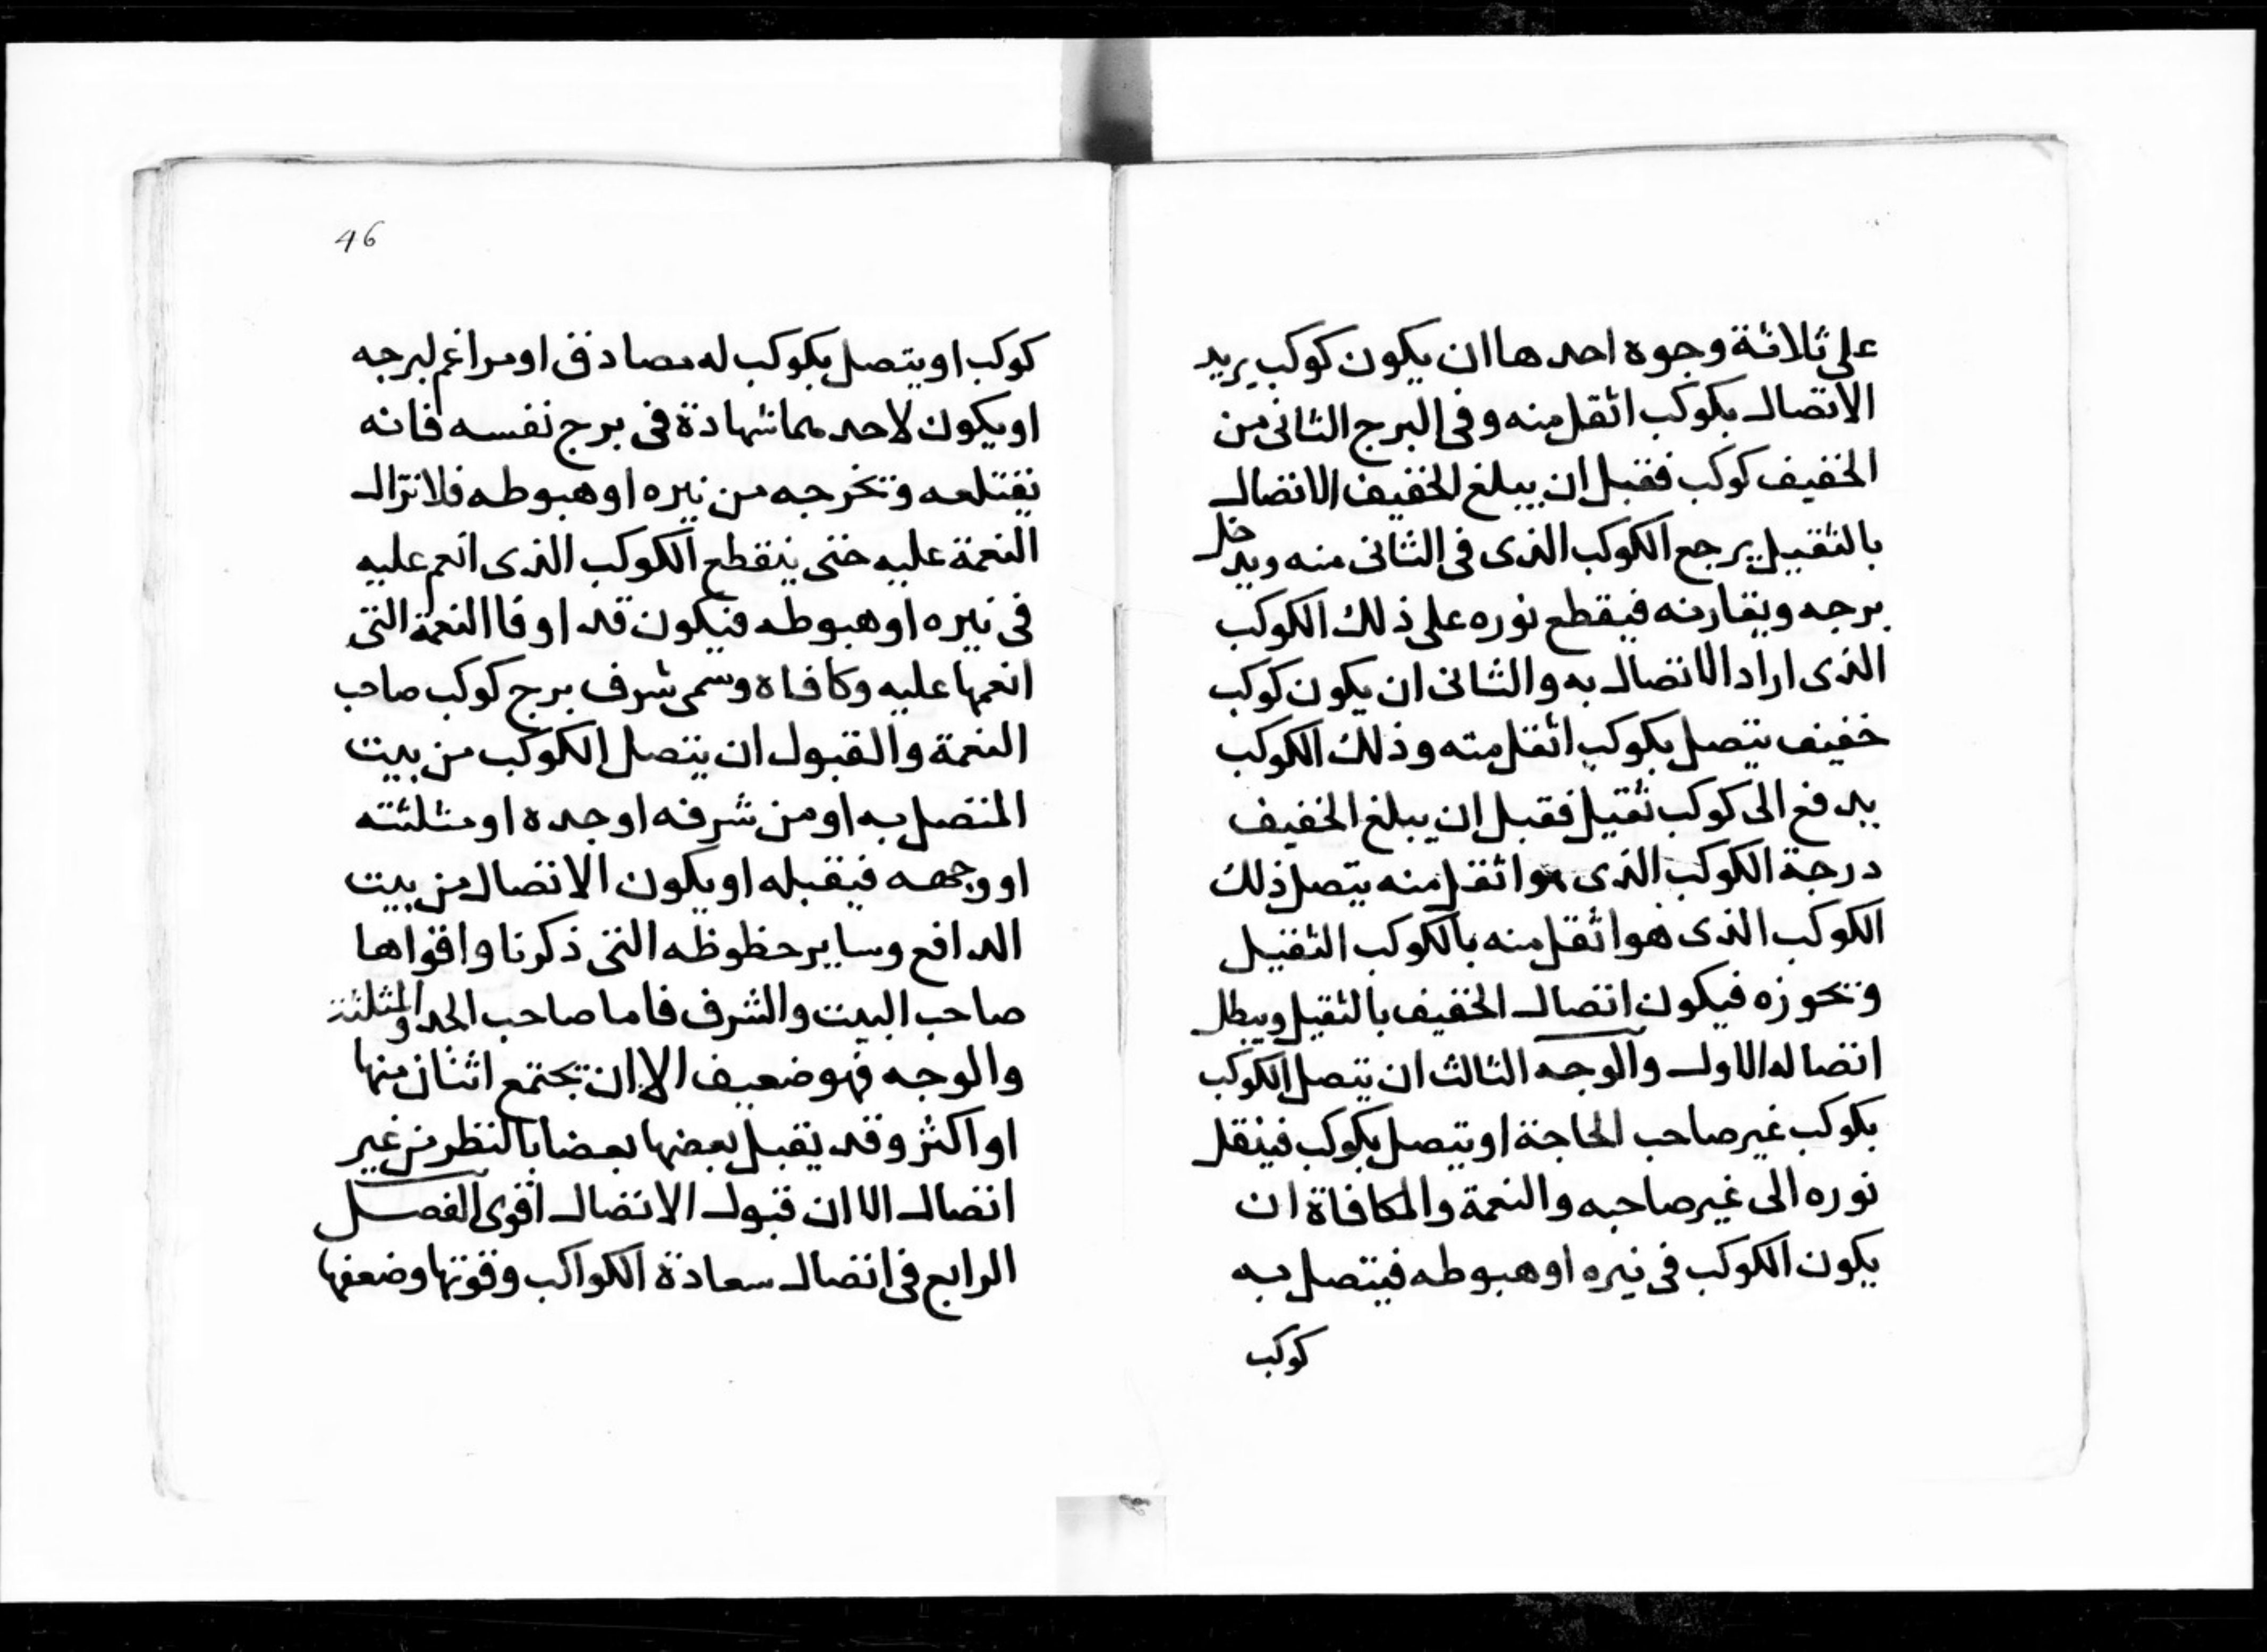 على ثلاثة وجوه احدها ان يكون كوكب يريد
الاتصال بكوكب اثقل منه وفى البرج الثانى من
الخفيف كوكب فقبل ان يبلغ الخفيف الاتصال
بالثقيل يرجع الكوكب الذى فى الثانى منه ويدخل
برجه ويقارنه فيقطع نوره على ذلك الكوكب
الذى اراد الاتصال به والثانى ان يكون كوكب
خفيف يتصل بكوكب اثقل منه وذلك الكوكب
يدفع الى كوكب ثقيل فقبل ان يبلغ الخفيف
درجة الكوكب الذى هو اثقل منه يتصل ذلك
الكوكب الذى هو اثقل منه بالكوكب الثقيل
وتحوزه فيكون اتصال الخفيف بالثقيل ويبطل
اتصاله الاول والوجه الثالث ان يتصل الكوكب
بكوكب غير صاحب الحاجة او يتصل بكوكب فينقل
نوره الى غير صاحبه والنعمة والمكافاة ان
يكون الكوكب فى نيره او هبوطه فيتصل به
كوكب
46
كوكب او يتصل بكوكب له مصادق او مراغم لبرجه
او يكون لاحدهما شهادة فى برج نفسه فانه
يقتلعه وتخرجه من نيره او هبوطه فلا تزال
النعمة عليه حتى ينقطع الكوكب الذى انعم عليه
فى نيره او هبوطه فيكون قد اوفا النعمة التى
انعمها عليه وكافاه وسمى شرف برج كوكب صاحب
النعمة والقبول ان يتصل الكوكب من بيت
المتصل به او من شرفه او حده او مثلثته
او وجهه فيقبله او يكون الاتصال من بيت
الدافع وساير حظوظه التى ذكرنا واقواها
صاحب البيت والشرف فاما صاحب الحد والمثلثة
والوجه فهو ضعيف الا ان تجتمع اثنان منها
او اكثر وقد يقبل بعضها بعضا بالنظر من غير
اتصال الا ان قبول الاتصال اقوى الفصل
الرابع فى اتصال سعادة الكواكب وقوتها وضعفها